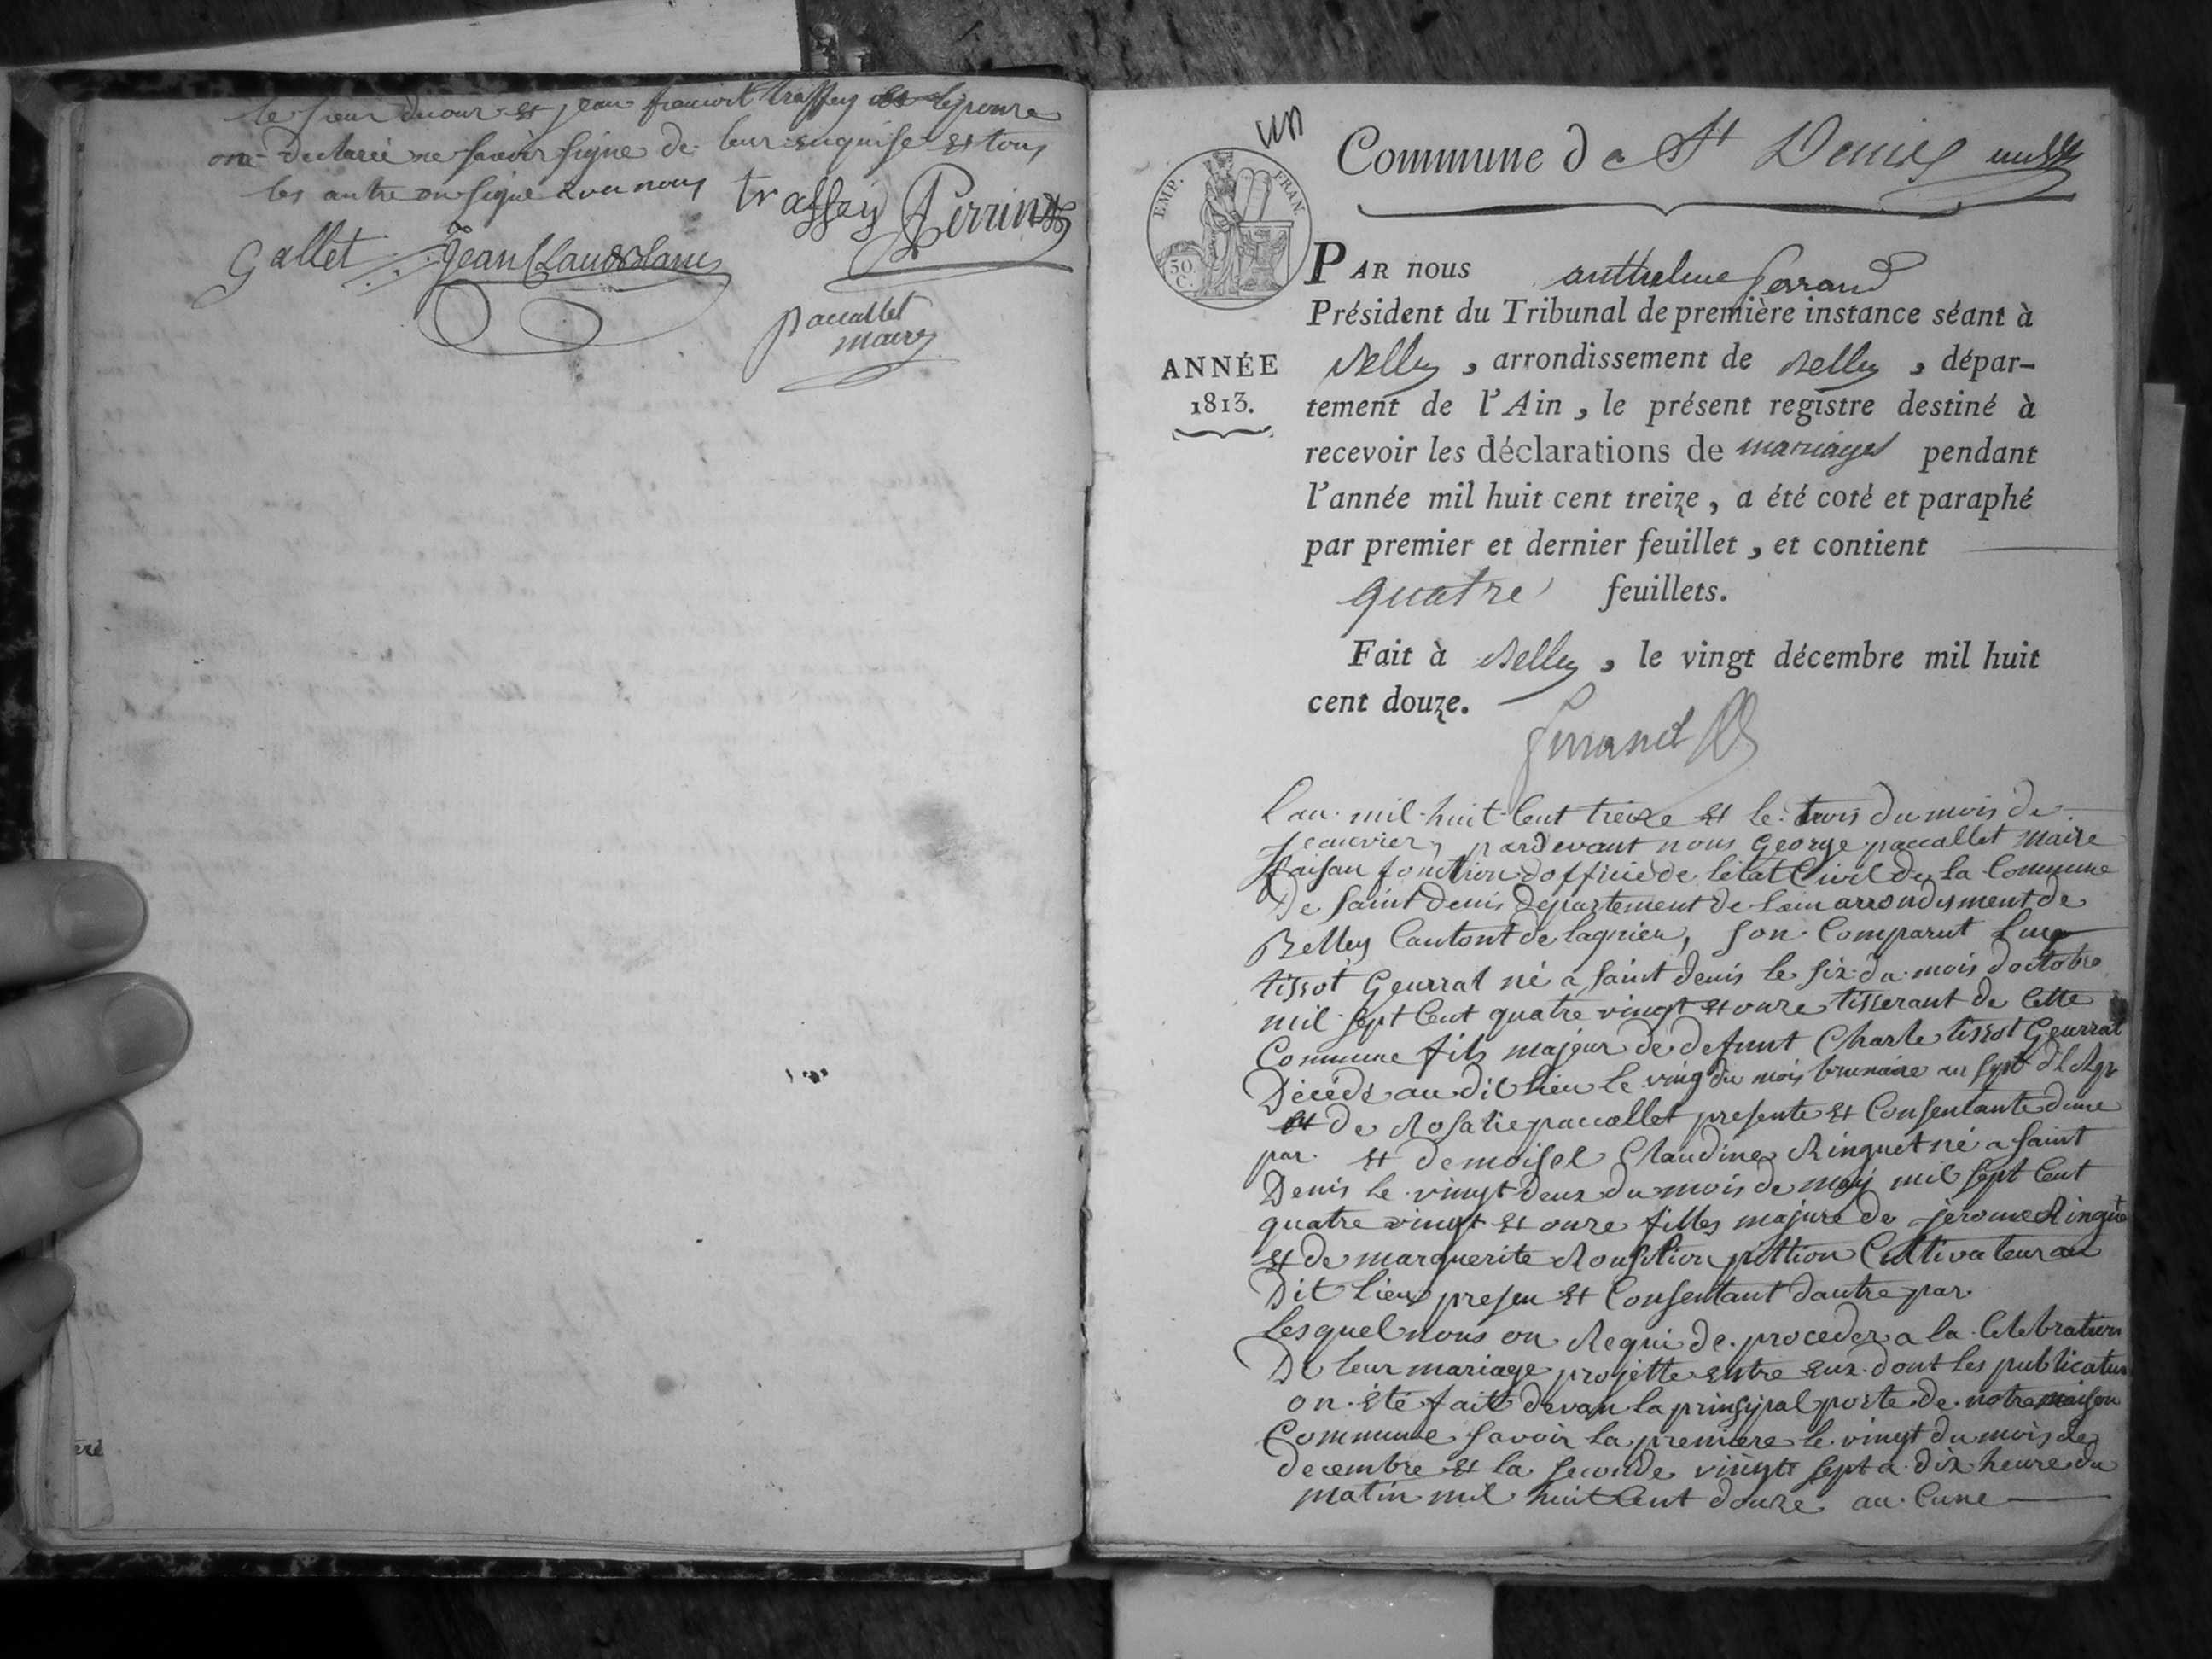 le sieur ducour et jean francoit traffey et lepouse
on declareé ne savoir signe de leur enquise et tous
les autre on signe avec nous
traffey Perrin
Gallet Jean Claude
paccallet
maire
un
Commune de St Denis
EMP. FRAN.
50 C.
PAR nous anthelme ferrand
Président du Tribunal de première instance séant à
Belley, arrondissement de Belley, dépar-
ANNÉE
1813.
tement de l'Ain, le présent registre destiné à
recevoir les déclarations de mariages pendant
l'année mil huit cent treize, a été coté et paraphé
par premier et dernier feuillet, et contient
quatre feuillets.
Fait à Belley, le vingt décembre mil huit
cent douze.
ferrand
Lan mil huit Cent treize et le trois du mois de
Jeanvier, pardevant nous George paccallet maire
faisan fonction dofficié de létat Civil de la Commune
De Saint Denis Département de Lain arrondisment de
Belley Cantont de lagnieu, Son Comparut Luc
tissot Geurrat né a saint denis le six du mois doctobre
mil sept Cent quatre vingt et onze tisserant de Cette
Commune fils majeur de defunt Charle tissot Geurrat
Décédé au dit lieu le ving du mois brumaire an sept
et de Rosalie paccallet presente et Consentante dune
par et demoisel Claudine Ringuet né a Saint
Denis le vingt deux du mois de may mil sept Cent
quatre vingt et onze filles majure de jerome Ringuet
et de marguerite pittion Cultivateur au
Dit lieu presen et Consentant dautre par
Lesquel nous on Requi de proceder a la Celebration
De leur mariage projette entre eux dont les publication
on été fait devan la prinsipal porte de notre maison
Commune Savoir la premiere le vingt du mois de
decembre et la seconde vingt sept a dix heure du
matin mil huit Cent douze au cune